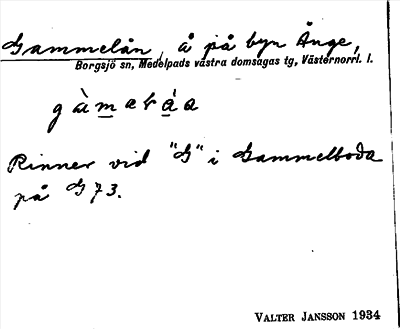 Gammelån, å på byn Ånge,
Borgsjö sn, Medelpads västra domsagas tg, Västernorrl. l.
Rinner vid "G" i Gammelboda
på G 73.
VALTER JANSSON 1934